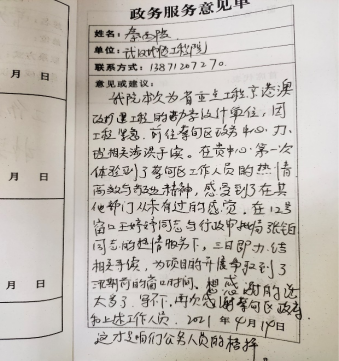 政务服务意见单
姓名:
单位: 武汉
工程院
联系方式: 13871207270.
意见或建议:
我院本次为省重点工程京港澳
改扩建工程的勘察设计单位,因
工程紧急,前往孝南区政务中心,办
理相关涉洪手续。在贵中心第一次
体验到了孝南区工作人员的热情
高效与敬业精神,感受到了在其
他部门从未有过的感觉。在12号
窗口王婷婷同志与行政审批局张
同志的热情服务下,三日即办结
相关手续,为项目的开展争取到了
汛期前的窗口时间。想感谢的话
太多了,写不下,再次感谢孝南区政务
和上述工作人员. 2021年4月14日
这才是咱们公务人员的榜样
月 日
月 日
日